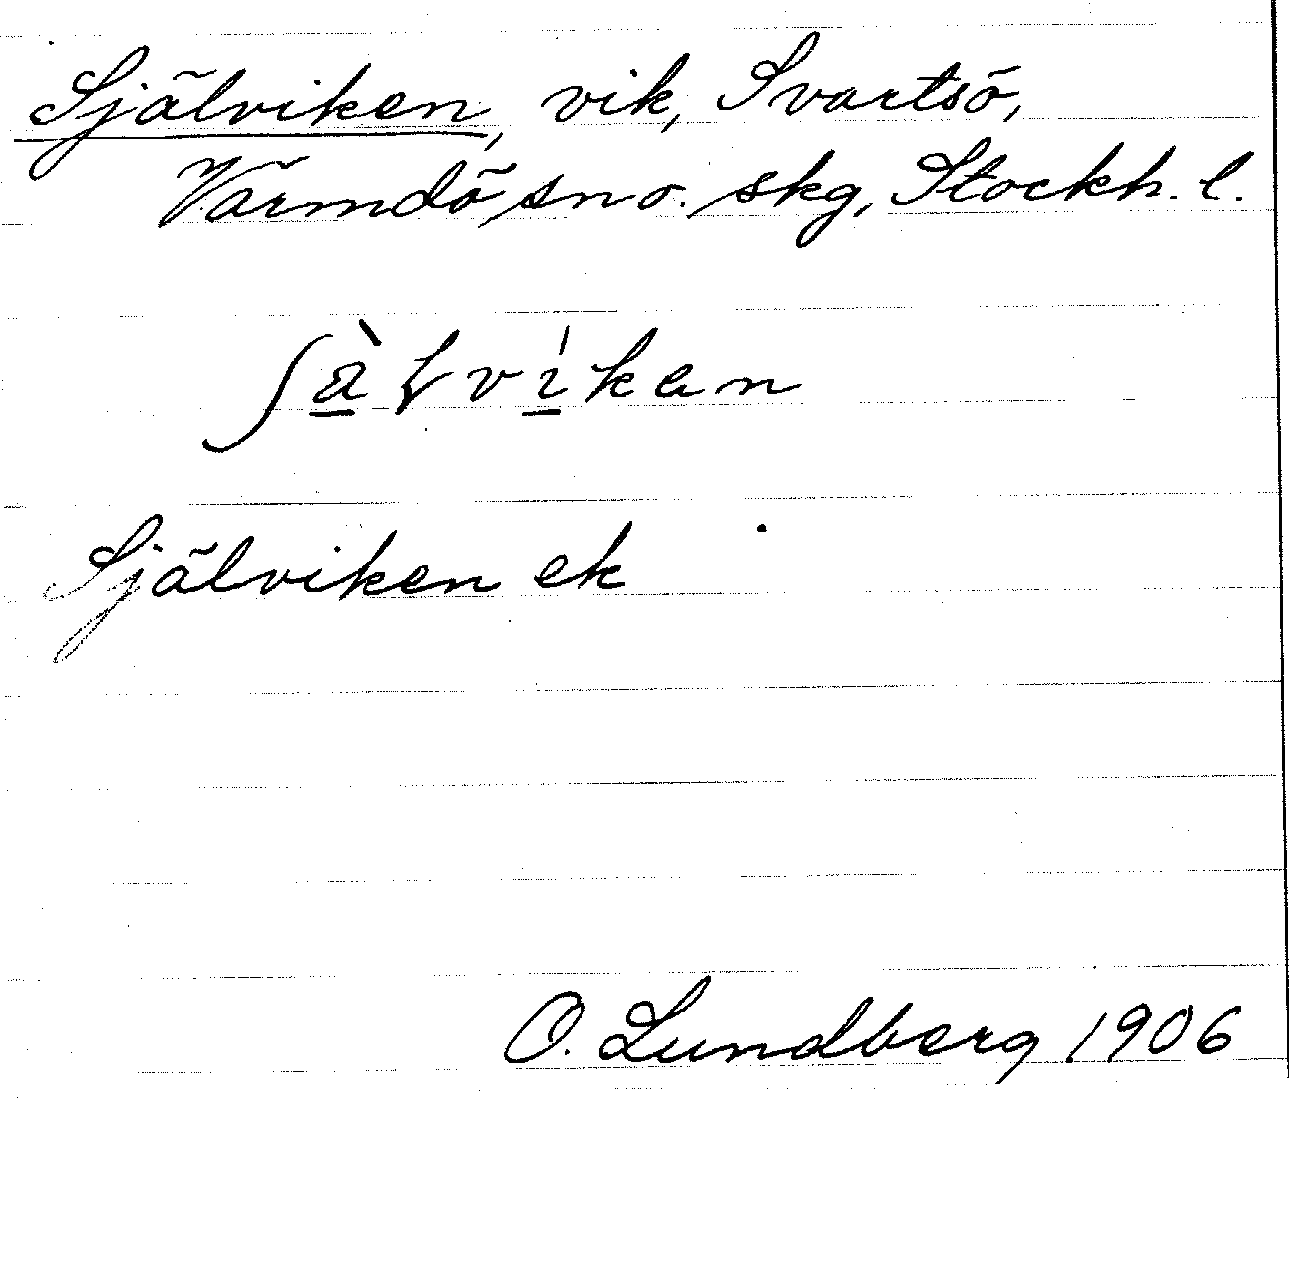 Själviken, vik, Svartsö,
Värmdö sn o. skg, Stockh. l.
Själviken ek
O. Lundberg 1906